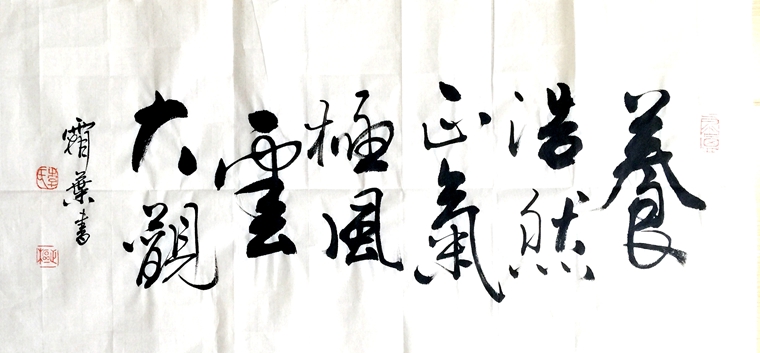 養
浩然
正氣
極風
雲
大觀
霜葉書